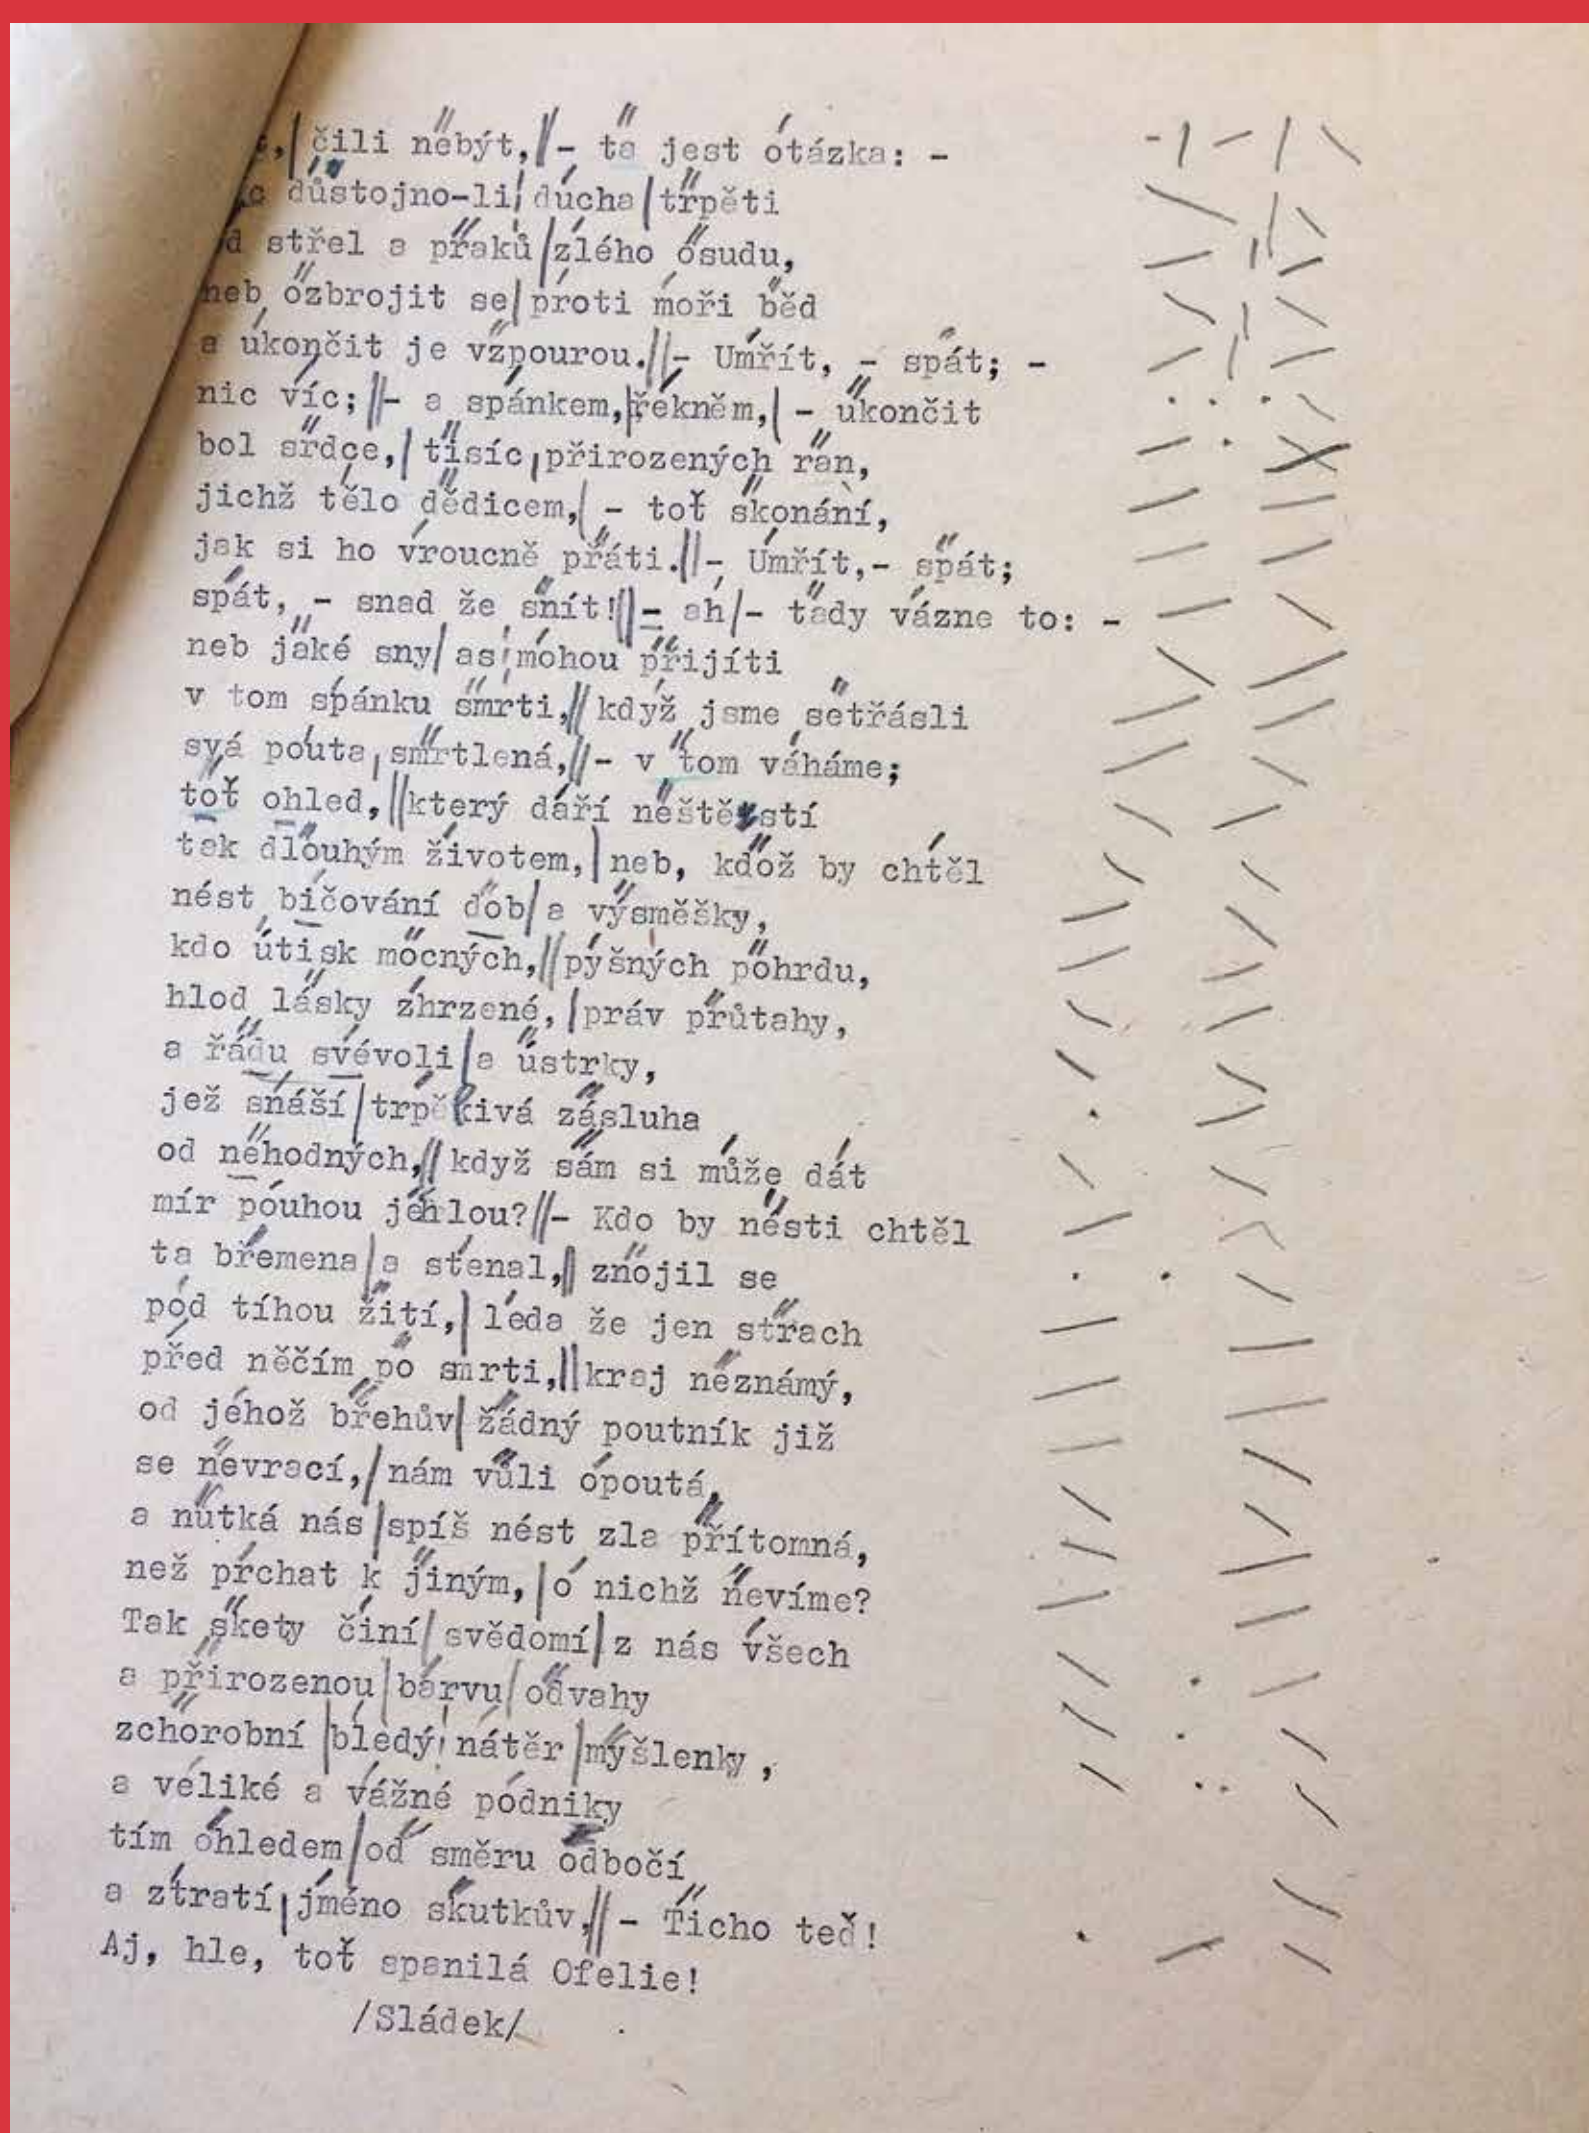 čili nebýt, - ta jest otázka: -
důstojno-li ducha trpěti
střel a praků zlého osudu,
neb ozbrojit se proti moři běd
a ukončit je vzpourou. - Umřít, - spát; -
nic víc; - a spánkem, řekněm, - ukončit
bol srdce, tisíc přirozených ran,
jichž tělo dědicem, - toť skonání,
jak si ho vroucně přáti. - Umřít,- spát;
spát, - snad že snít! - ah - tady vázne to: -
neb jaké sny as mohou přijíti
v tom spánku smrti, když jsme setřásli
svá pouta smrtlená, - v tom váháme;
toť ohled, který daří neštěstí
tak dlouhým životem, neb, kdož by chtěl
nést bičování dob a výsměšky,
kdo útisk mocných, pyšných pohrdu,
hlod lásky zhrzené, práv průtahy,
a řádu svévoli a ústrky,
jež snáší trpělivá zásluha
od nehodných, když sám si může dát
mír pouhou jehlou? - Kdo by nésti chtěl
ta břemena a stenal, znojil se
pod tíhou žití, leda že jen strach
před něčím po smrti, kraj neznámý,
od jehož břehův žádný poutník již
se nevrací, nám vůli opoutá,
a nutká nás spíš nést zla přítomná,
než prchat k jiným, o nichž nevíme?
Tak skety činí svědomí z nás všech
a přirozenou barvu odvahy
zchorobní bledý nátěr myšlenky,
a veliké a vážné podniky
tím ohledem od směru odbočí
a ztratí jméno skutkův. - Ticho teď!
Aj, hle, toť spanilá Ofelie!
/Sládek/